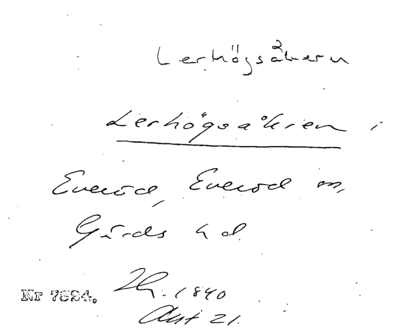 Lerhögsåkern
Lerhögsåkren i
Everöd, Everöd sn,
Gärds hd.
Nr 7824. 1840
Akt 21.